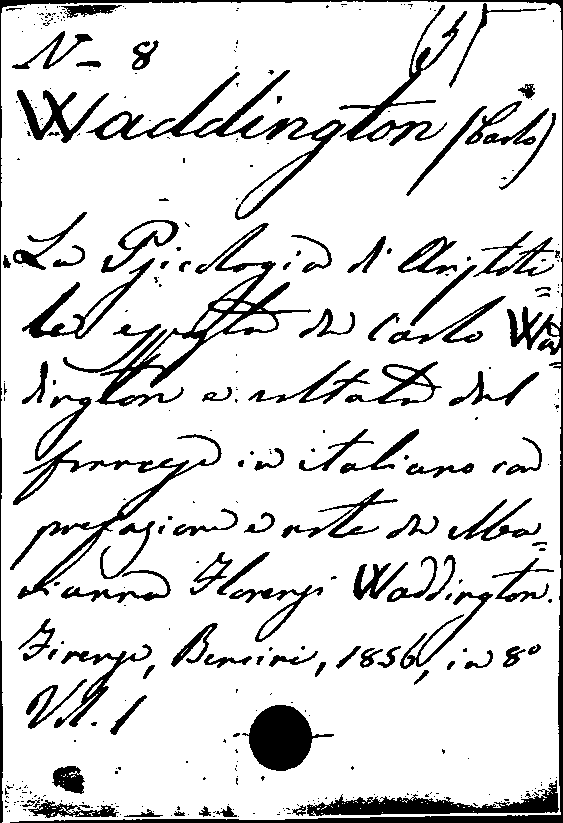 N– 8
Waddington (Carlo)
La Psicologia di Aristoti=
le esposta da Carlo Wad=
dington e voltata dal
francese in italiano con
prefazione e note da Ma=
rianna Florenzi Waddington.
Firenze, Bencini, 1856, in 8º
Vol. 1